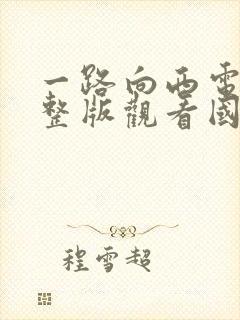 一路向西電
整版觀看國
程雪超